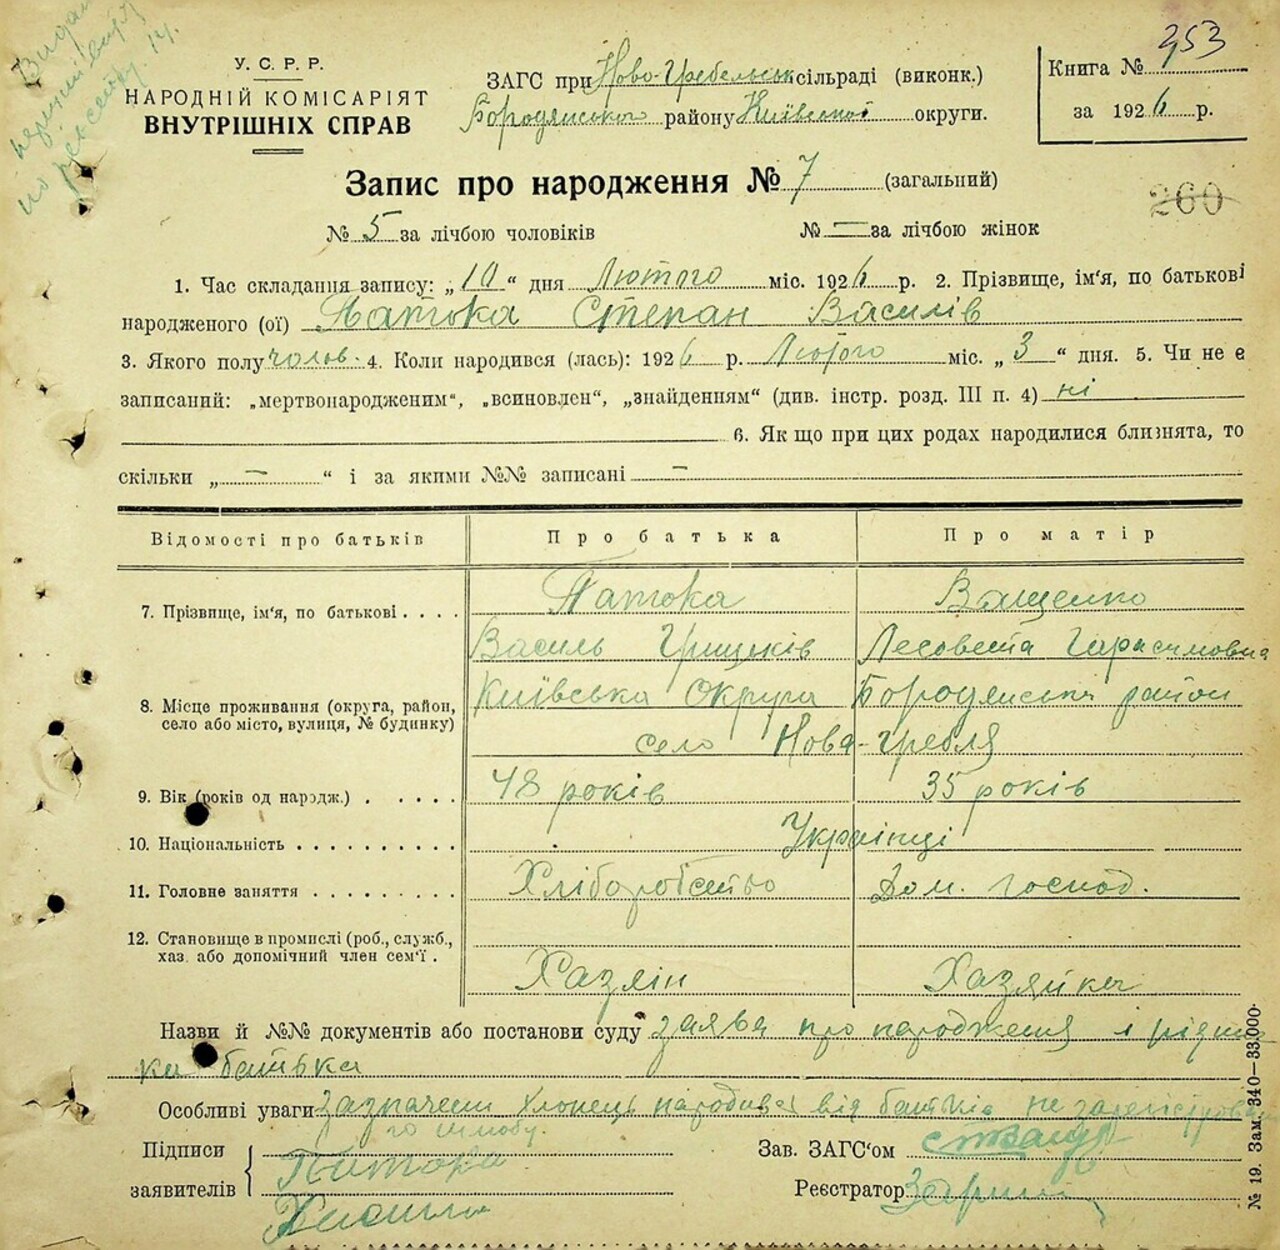 У. С. Р. Р.
НАРОДНІЙ КОМІСАРІЯТ
ВНУТРІШНІХ СПРАВ
ЗАГС при Ново-Гребельськ сільраді (виконк.)
Бородянського району Київської округи.
353
Книга №
за 1926 р.
Запис про народження № 7 (загальний)
260
№ 5 за лічбою чоловіків № — за лічбою жінок
1. Час складання запису: „10“ дня Лютого міс. 1926 р. 2. Прізвище, ім'я, по батькові
народженого (ої) Патока Степан Василів
3. Якого полу чолов. 4. Коли народився (лась): 1926 р. Лютого міс. „3“ дня. 5. Чи не є
записаний: „мертвонародженим“, „всиновлен“, „знайденням“ (див. інстр. розд. III п. 4) ні
6. Як що при цих родах народилися близнята, то
скільки „ — “ і за якими №№ записані —
Відомості про батьків Про батька Про матір
7. Прізвище, ім'я, по батькові . . . . Патока Ващенко
Василь Грицьків Лесовета Гарасимовна
8. Місце проживання (округа, район, село або місто, вулиця, № будинку) Київська Округа Бородянський район
село Нова-Гребля
9. Вік (років од народж.) . . . . . 48 років 35 років
10. Національність . . . . . . . . . . Українці
11. Головне заняття . . . . . . . . Хліборобство Дом. господ.
12. Становище в промислі (роб., служб., хаз. або допомічний член сем'ї . Хазяін Хазяйка
Назви й №№ документів або постанови суду заява про народження і
батька
Особливі уваги зазначени хлопець народився від батьків не
го шлюбу.
Підписи
заявителів
Патока
Василь
Зав. ЗАГС'ом
Реєстратор
№ 19. Зам. 340—33.000.